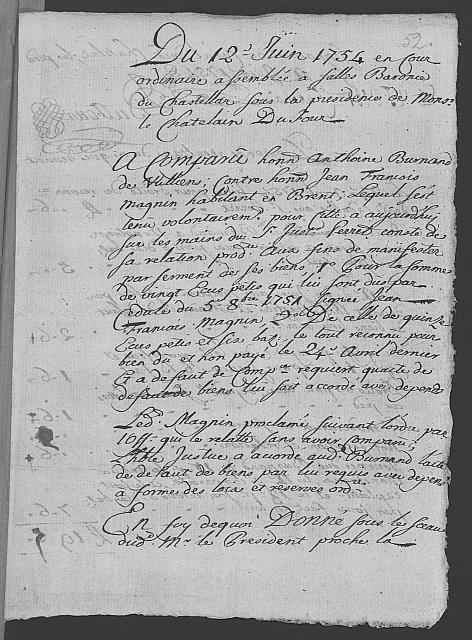 52
Du 12.e Juin 1754 en Cour
ordinaire assemblée à Salles Baronie
du Chastellar sous la presidence de Monsr
le Chatelain Dufour
A Comparu honn Anthoine Burnand
de Vulliens, Contre honn Jean François
magnin habitant en Brent; Lequel s'est
tenu volontairemt pour cité a aujourdhuy
sur les mains du Sr Just Ferret consté de
sa relation prod. Aux fins de manifester
par serment de ses biens, 1o Pour la somme
de vingt Ecus petis qui lui sont dus par
Cedule du 5e 8bre 1751 signée Jean
François Magnin, 2o De celle de quinze
Ecus petis et six baz. le tout reconnu pour
bien du et non payé le 24e Avril dernier
Et a defaut de Comp.on requiert quaite de
defaut de biens lui soit accordé avec depends
Led. Magnin proclamé suivant lordre par
loff. qui le relatte sans avoir comparu;
L'able Justice a acordé aud. Burnand laite
de defaut de biens par lui requis avec depens
a forme des loix et reserves ordres
En foy dequoi Donné sous le sceau
dud. Mr le President proche la